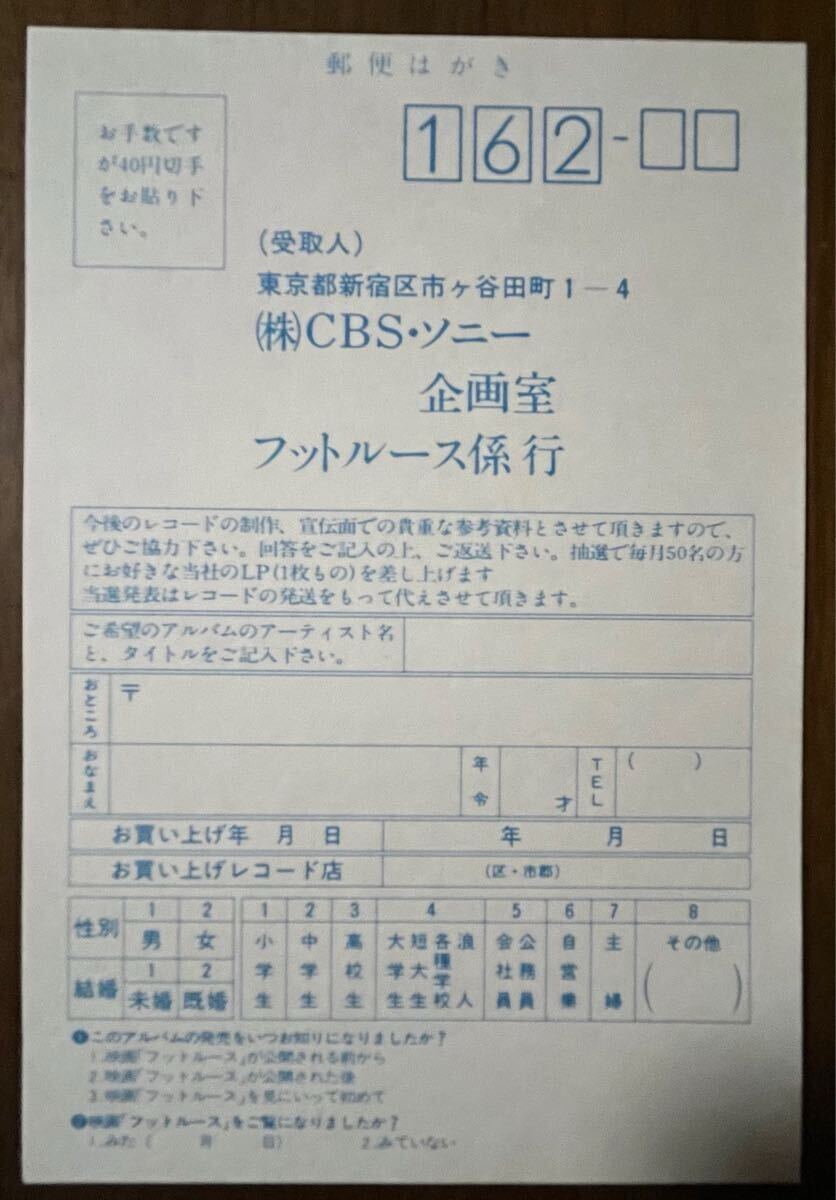 郵便はがき
お手数です
が40円切手
をお貼り下
さい。
162-
(受取人)
東京都新宿区市ヶ谷田町1-4
㈱CBS・ソニー
企画室
フットルース係 行
今後のレコードの制作、宣伝面での貴重な参考資料とさせて頂きますので、
ぜひご協力下さい。回答をご記入の上、ご返送下さい。抽選で毎月50名の方
にお好きな当社のLP(1枚もの)を差し上げます
当選発表はレコードの発送をもって代えさせて頂きます。
ご希望のアルバムのアーティスト名
と、タイトルをご記入下さい。
おところ 〒
おなまえ 年令 才 TEL ( )
お買い上げ年 月 日 年 月 日
お買い上げレコード店 (区・市郡)
性別 1 男 2 女
結婚 1 未婚 2 既婚
1 小学生
2 中学生
3 高校生
4 大学生 短大生 各種学校 浪人
5 会社員 公務員
6 自営業
7 主婦
8 その他 ( )
❶このアルバムの発売をいつお知りになりましたか?
1.映画「フットルース」が公開される前から
2.映画「フットルース」が公開された後
3.映画「フットルース」を見にいって初めて
❷映画「フットルース」をご覧になりましたか?
1.みた( 月 日) 2.みていない